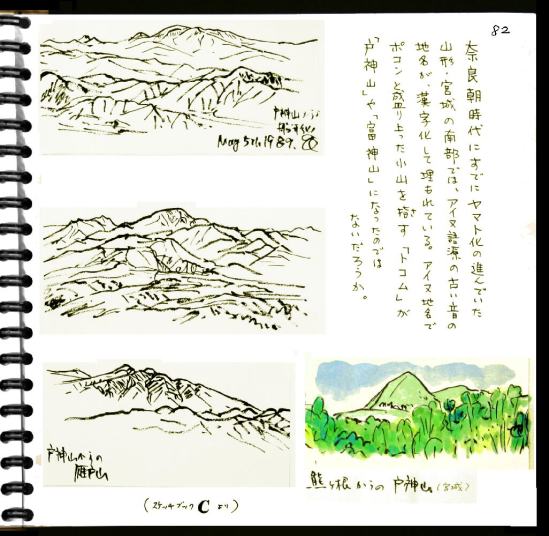 82
奈良朝時代にすでにヤマト化の進んでいた
山形・宮城の南部では、アイヌ語源の古い音の
地名が、漢字化して埋もれている。アイヌ地名で
ポコンと盛り上った小山を指す「トコム」が
「戸神山」や「富神山」になったのでは
ないだろうか。
さ
戸神山から
May 5th. 1989.
戸神山からの
雁戸山
熊ヶ根からの戸神山(宮城)
(スケッチブック C より)